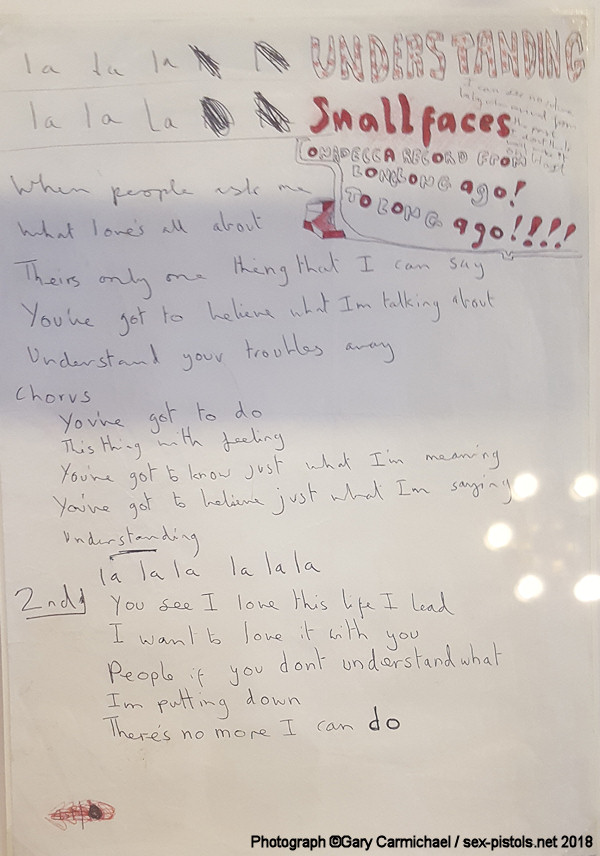 la la la UNDERSTANDING
la la La Small faces.
ON A DECCA RECORD FROM
LONG LONG ago!
TO LONG ago!!!!
When people ask me
What love's all about
Theirs only one thing that I can say
You've got to believe what Im talking about
Understand your troubles away
Chorus
You've got to do
This thing with feeling
You've got to know just what I'm meaning
You've got to believe just what Im saying
Understanding
la la la la la la
2nd You see I love this life I lead
I want to love it with you
People if you dont understand what
Im putting down
There's no more I can do
Photograph ©Gary Carmichael / sex-pistols.net 2018